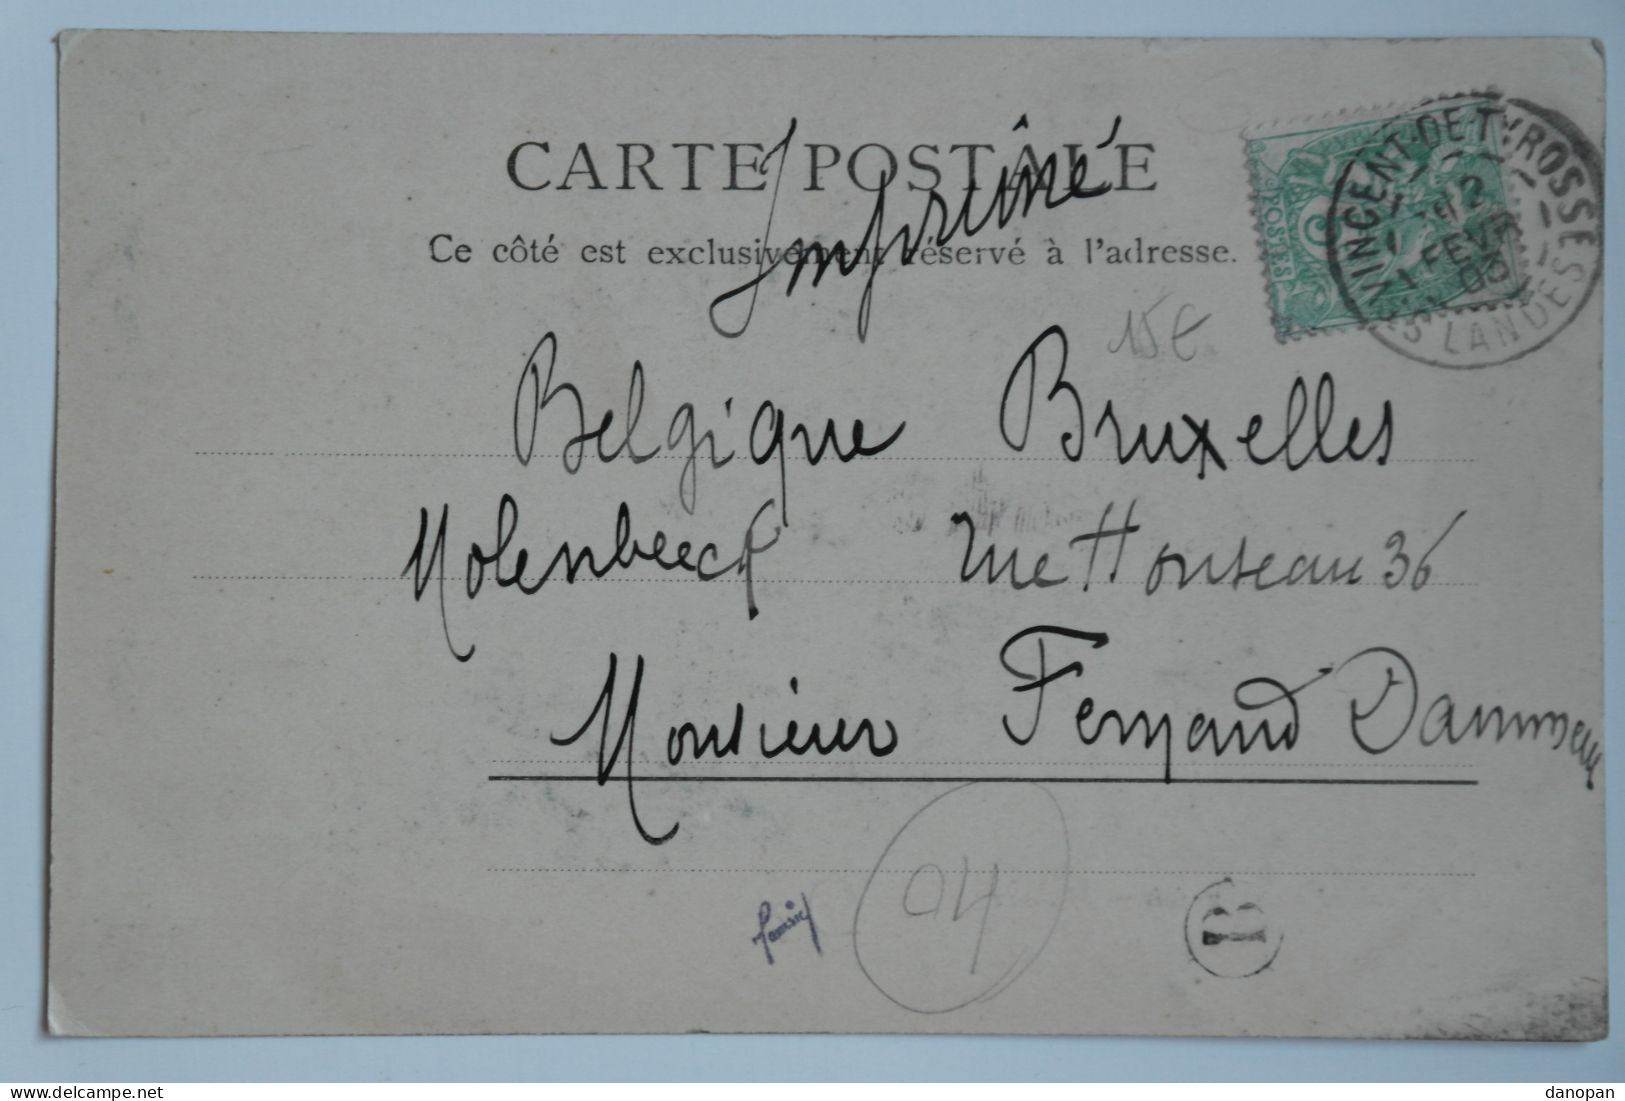 CARTE POSTALE
Imprimé
Ce côté est exclusivement réservé à l'adresse.
VINCENT-DE-TYROSSE
FEVR
LANDES
POSTES
5
15 €
Belgique Bruxelles
Molenbeeck rue Houseau 36
Monsieur Fernand
04
B
danopan
delcampe.net